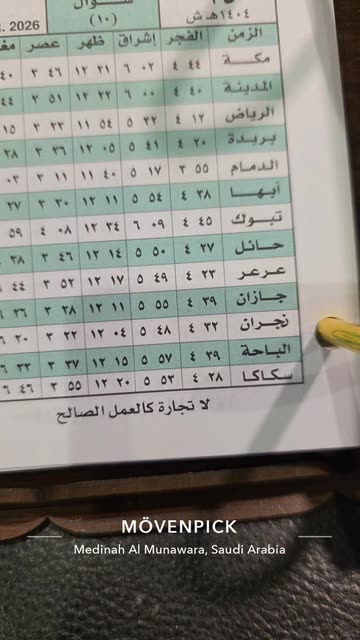 ١٤٠٤هـ ش شوال 2026
(١٠)
الزمن الفجر إشراق ظهر عصر
مكة ٤ ٤٤ ٦ ٠٢ ١٢ ٢١ ٣ ٤٦ ٤٠
المدينة ٤ ٤٠ ٦ ٠٠ ١٢ ٢٢ ٣ ٥١ ٤٤
الرياض ٤ ١٢ ٥ ٣٢ ١١ ٥٤ ٣ ٢٣ ١٥
بريدة ٤ ٢٠ ٥ ٤١ ١٢ ٠٥ ٣ ٣٦ ٢٨
الدمام ٣ ٥٥ ٥ ١٧ ١١ ٤٠ ٣ ١١ ٠٣
أبها ٤ ٣٨ ٥ ٥٤ ١٢ ١١ ٣ ٣٠ ٢٧
تبوك ٤ ٤٥ ٦ ٠٩ ١٢ ٣٤ ٤ ٠٨ ٥٩
حائل ٤ ٢٧ ٥ ٥٠ ١٢ ١٤ ٣ ٤٦ ٣٨
عرعر ٤ ٢٣ ٥ ٤٩ ١٢ ١٧ ٣ ٥٢ ٤٤
جازان ٤ ٣٩ ٥ ٥٥ ١٢ ١١ ٣ ٢٨ ٢٦
نجران ٤ ٣٢ ٥ ٤٨ ١٢ ٠٤ ٣ ٢٢ ٦ ٢٠
الباحة ٤ ٣٩ ٥ ٥٧ ١٢ ١٥ ٣ ٣٧ ٦ ٣٣
سكاكا ٤ ٢٨ ٥ ٥٣ ١٢ ٢٠ ٣ ٥٥ ٦ ٤٦
لا تجارة كالعمل الصالح
MÖVENPICK
Medinah Al Munawara, Saudi Arabia